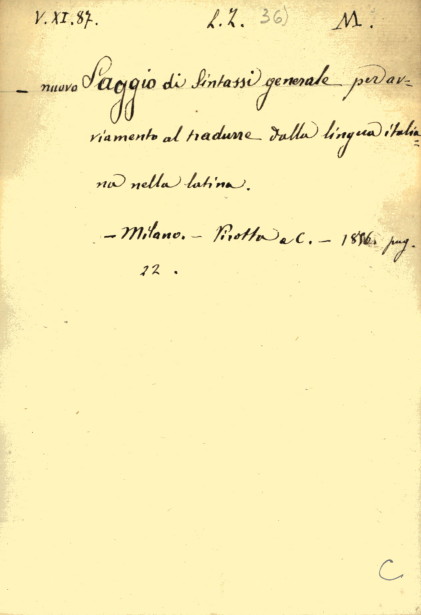 V. XI. 87. L. Z. 36) M.
– nuovo Saggio di Sintassi generale per av-
viamento al tradurre dalla lingua italia=
na nella latina.
– Milano. – Pirotta e C. – pag.
22.
C